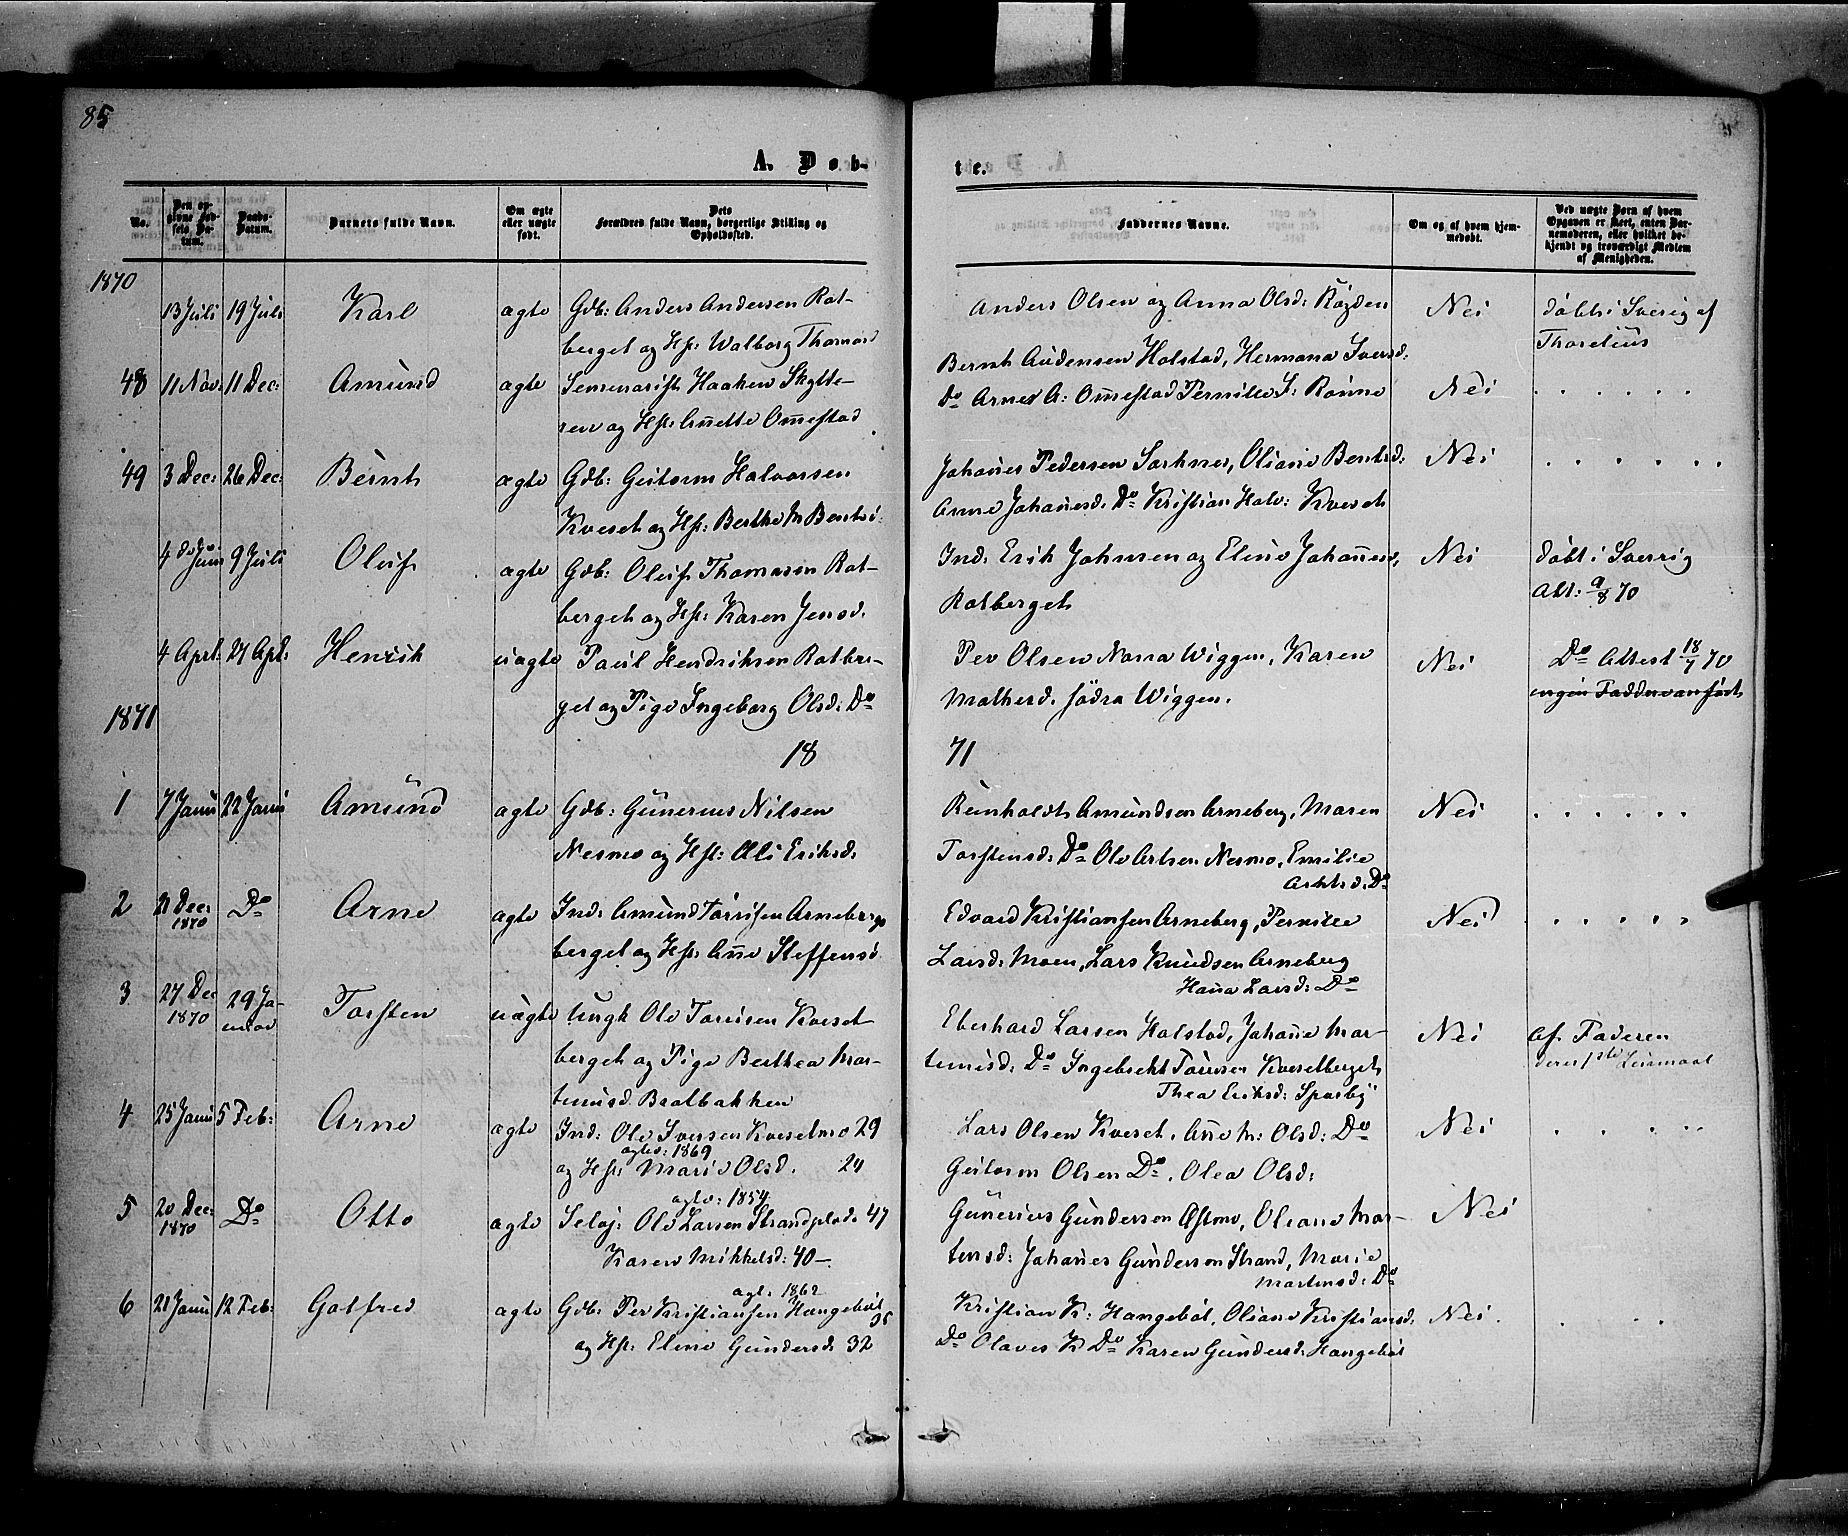 85
A. Døb-
te.
No.
Den op-
givne Fød-
sels Da-
tum.
Daabs-
Datum.
Barnets fulde Navn.
Om ægte
eller uægte
født.
Dets
Forældres fulde Navn, borgerlige Stilling og
Opholdssted.
Faddernes Navne.
Om og af hvem hjem-
medøbt.
Ved uægte Børn af hvem
Opgaven er skeet, enten Bar-
nemoderen, eller hvilket be-
kjendt og troværdigt Medlem
af Menigheden.
1870
13 Juli 19 Juli Karl ægte Gdb: Anders Andersen Rot-
berget og Hst: Walborg Thomasd
Anders Olsen og Anna Olsd: Røgden Nei døbt i Sverig af
Thorelius
48 11 Nov: 11 Dec: Amund ægte Semenarist Haaken Skytte-
ren og Hst: Anette Omestad
Bernh Audensen Holstad, Hermana Iversd:
Do Arnes A: Omestad Pernille I: Ronne Nei
49 3 Dec: 26 Dec: Bernh ægte Gdb: Gutorm Halvorsen
Kveset og Hst: Berthe M Berntsd:
Johanes Pedersen Sorhnes, Oliane Berntsd: Nei
Anne Johanesd. Do Kristian Halv: Kveset
4 Juni 9 Juli Oluf ægte Gdb: Oluf Thomasen Rot-
berget og Hst: Karen Jensd.
Ind: Erik Johnsen og Eline Johanesd, Nei døbt i Sverrig
Rotberget Att: 9/8 70
4 Aprl: 27 Apl: Henrik uægte Paul Hendriksen Rotber-
get og Pige Ingeborg Olsd: Do
Per Olsen Norra Wiggen, Karen Nei Do Attest 18/7 70
Mathesd. södra Wiggen. ingen Faddere anført
1871
18 71
1 7 Janu 22 Janu Amund ægte Gdb: Gunerius Nilsen
Nesmo og Hst: Oli Eriksd.
Reinholdt Amundsen Arneberg, Maren Nei
Torstensd: Do Ole Arlsen Nesmo, Emilie
Do
2 21 Dec: 1870 Do Arne ægte Ind: Amund Torrisen Arnebergs
berget og Hst: Ane Steffensd
Edvard Kristiansen Arneberg, Pernille Nei
Larsd: Moen, Lars Knudsen Arneberg
Hana Larsd: Do
3 27 Dec 1870 29 Ja-
nuar Torsten uægte Ungk Ole Torrisen Kveset
berget og Pige Berthea Mar-
tinusd. Bratbakken
Eberhard Larsen Holstad, Johane Mar- Nei af Faderen
tinusd: Do Ingebreht Torrisen Kvesetberget deres 1ste Leiermaal
Thea Eriksd: Sparby
4 25 Janu 5 Feb: Arne ægte Ind: Ole Iversen Kvesetmo 29
ægtev: 1869
og Hst: Marie Olsd. 24
Lars Olsen Kveset. Ane M: Olsd: Do Nei
Gutorm Olsen Do, Olea Olsd:
5 20 Dec: 1870 Do Otto ægte
ægtv: 1854
Selvej: Ole Larsen Strandplads 47
Karen Mikkelsd: 40 —
Gunerius Gundersen Østmo, Oliane Mar- Nei
tinsd: Johanes Gundersen Strand, Marie
Martinsd: Do
6 21 Janu 12 Feb: Gotfred ægte
ægt: 1862
Gdb: Per Kristiansen Hangebøl 35
og Hst: Eline Gundersd: 32
Kristian K: Hangebøl, Oliane Kristiansd: Nei.
Do Olaves K Do Karen Gundersd: Hangebøl